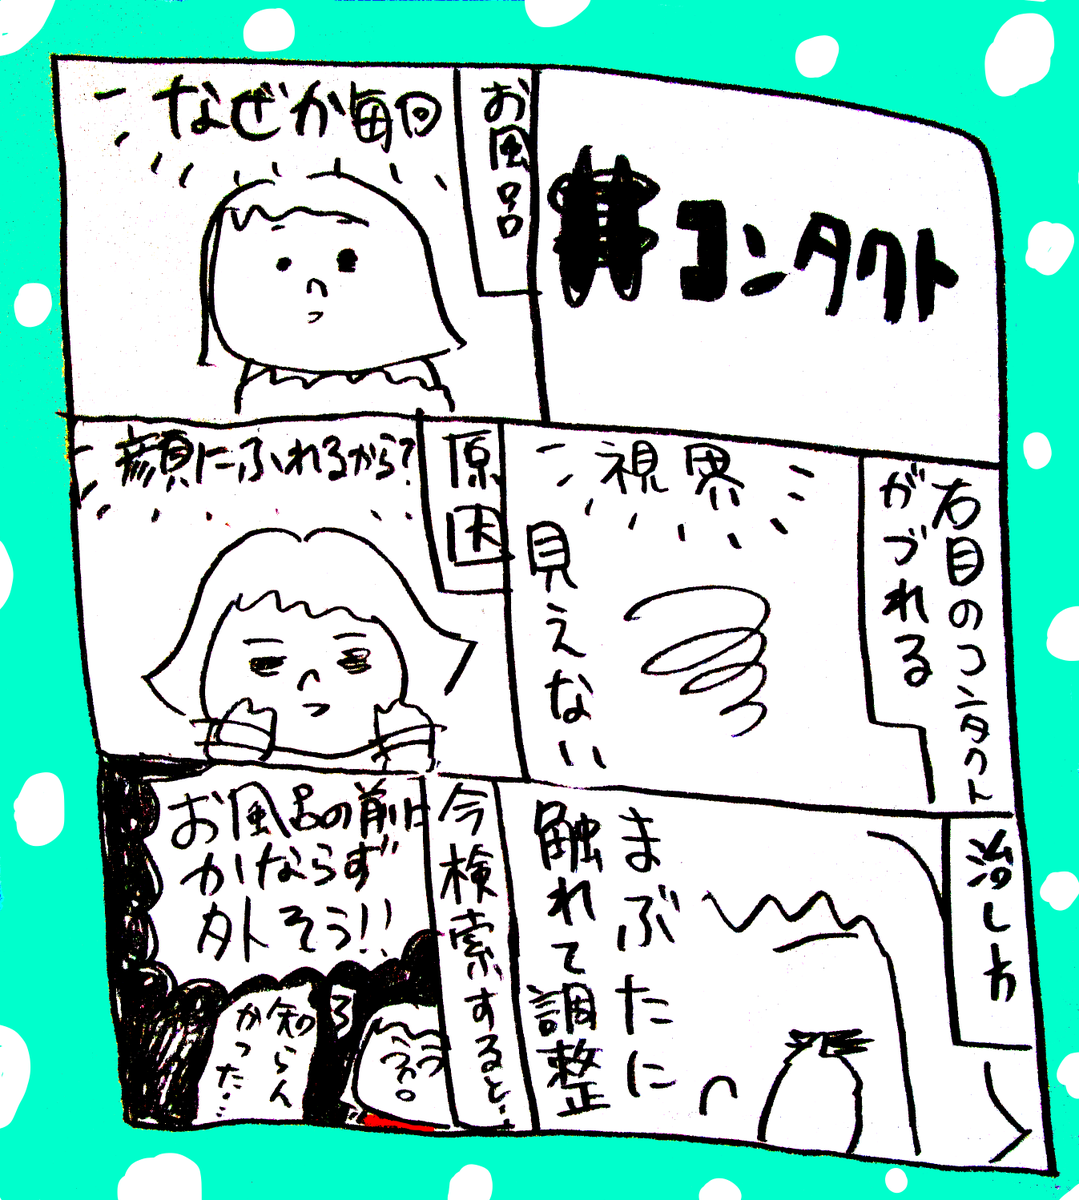 #コンタクト
お風呂
なぜか毎回
右目のコンタクト
がづれる
視界
見えない
原因
顔にふれるから?
治し方
まぶたに
触れて調整
今検索すると…
お風呂の前に
かならず
外そう!!
知らん
かった…